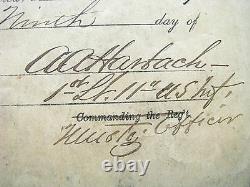 Ninth day of
A A Harbach
1st Lt. 11th U.S. Inf.
Commanding the Reg't.
Musty Officer